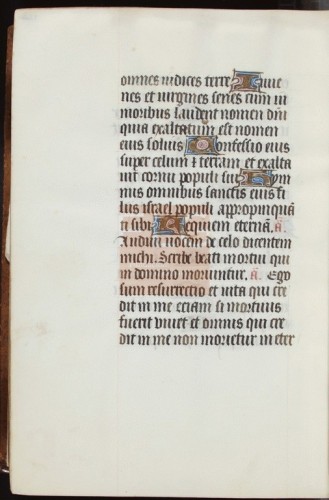 omnes iudices terre Iuue
nes et uirgines senes cum iu
nioribus laudent nomen dn̄i
quia exaltatum est nomen
eius solius Confessio eius
super celum ⁊ terram et exalta
uit cornu populi sui Hym
nus omnibus sanctis eius fi
liis israel populi appropinquā
ti sibi Requiem eternā. ā.
Audiui uocem de celo dicentem
michi. Scribe beati mortui qui
in domino moriuntur. ā. Ego
sum resurrectio et uita qui cre
dit in me eciam si mortuus
fuerit uiuet et omnis qui cre
dit in me non morietur in eter